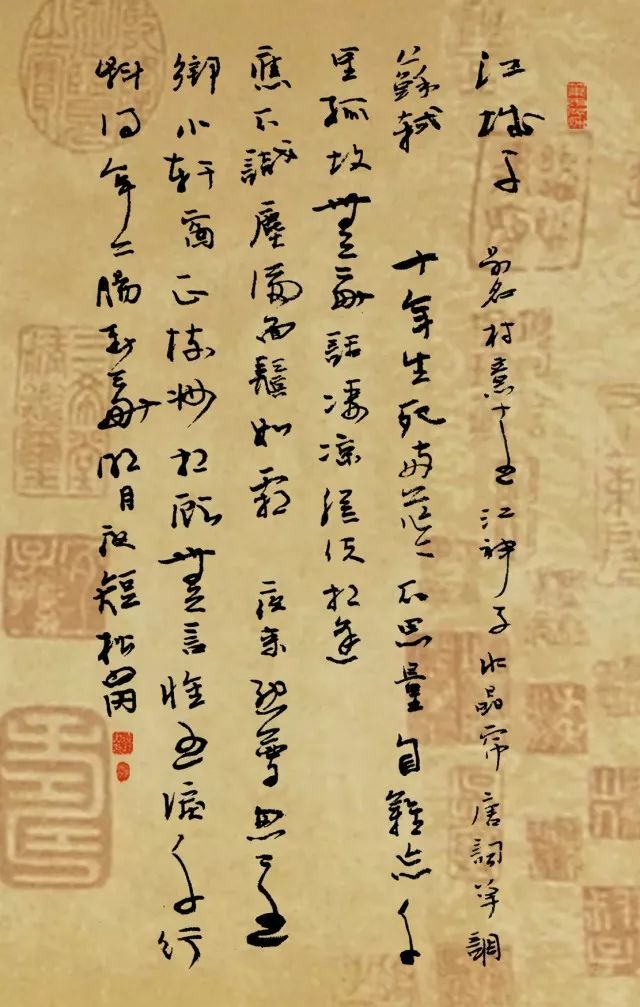 江城子 名村意遠 江神子 水晶帘 唐詞單調
蘇軾 十年生死兩茫茫 不思量自難忘千
里孤墳無處話凄涼縱使相逢
應不識塵滿面鬢如霜 夜來幽夢忽還
鄉小軒窗正梳妝相顧無言惟有淚千行
料得年年腸斷處明月夜短松岡